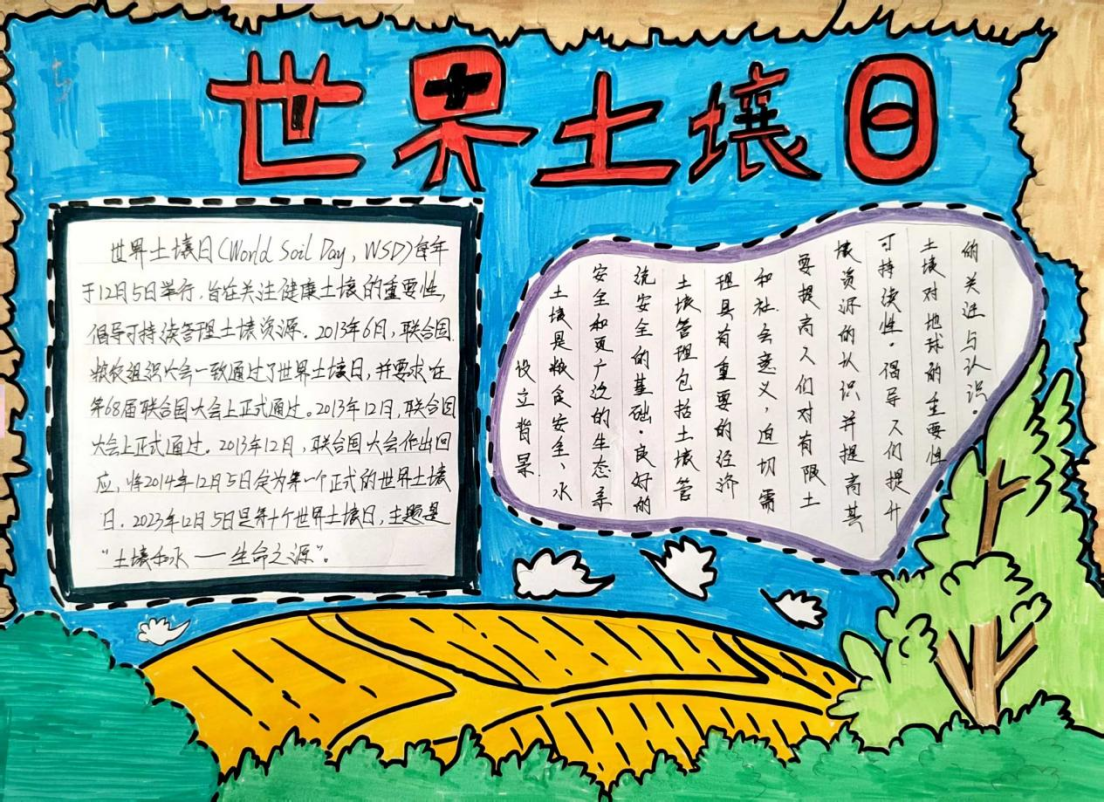 世界土壤日
世界土壤日(World Soil Day, WSD)每年
于12月5日举行,旨在关注健康土壤的重要性,
倡导可持续管理土壤资源。2013年6月,联合国
粮农组织大会一致通过了世界土壤日,并要求在
第68届联合国大会上正式通过。2013年12月,联合国
大会上正式通过。2013年12月,联合国大会作出回
应,将2014年12月5日定为第一个正式的世界土壤
日。2023年12月5日是第十个世界土壤日,主题是
“土壤和水——生命之源”。
的关注与认识。
土壤对地球的重要性
可持续性。倡导人们提升
壤资源的认识并提高其
要提高人们对有限土
和社会意义,迫切需
理具有重要的经济
土壤管理包括土壤管
统安全的基础。良好的
安全和更广泛的生态系
土壤是粮食安全、水
设立背景